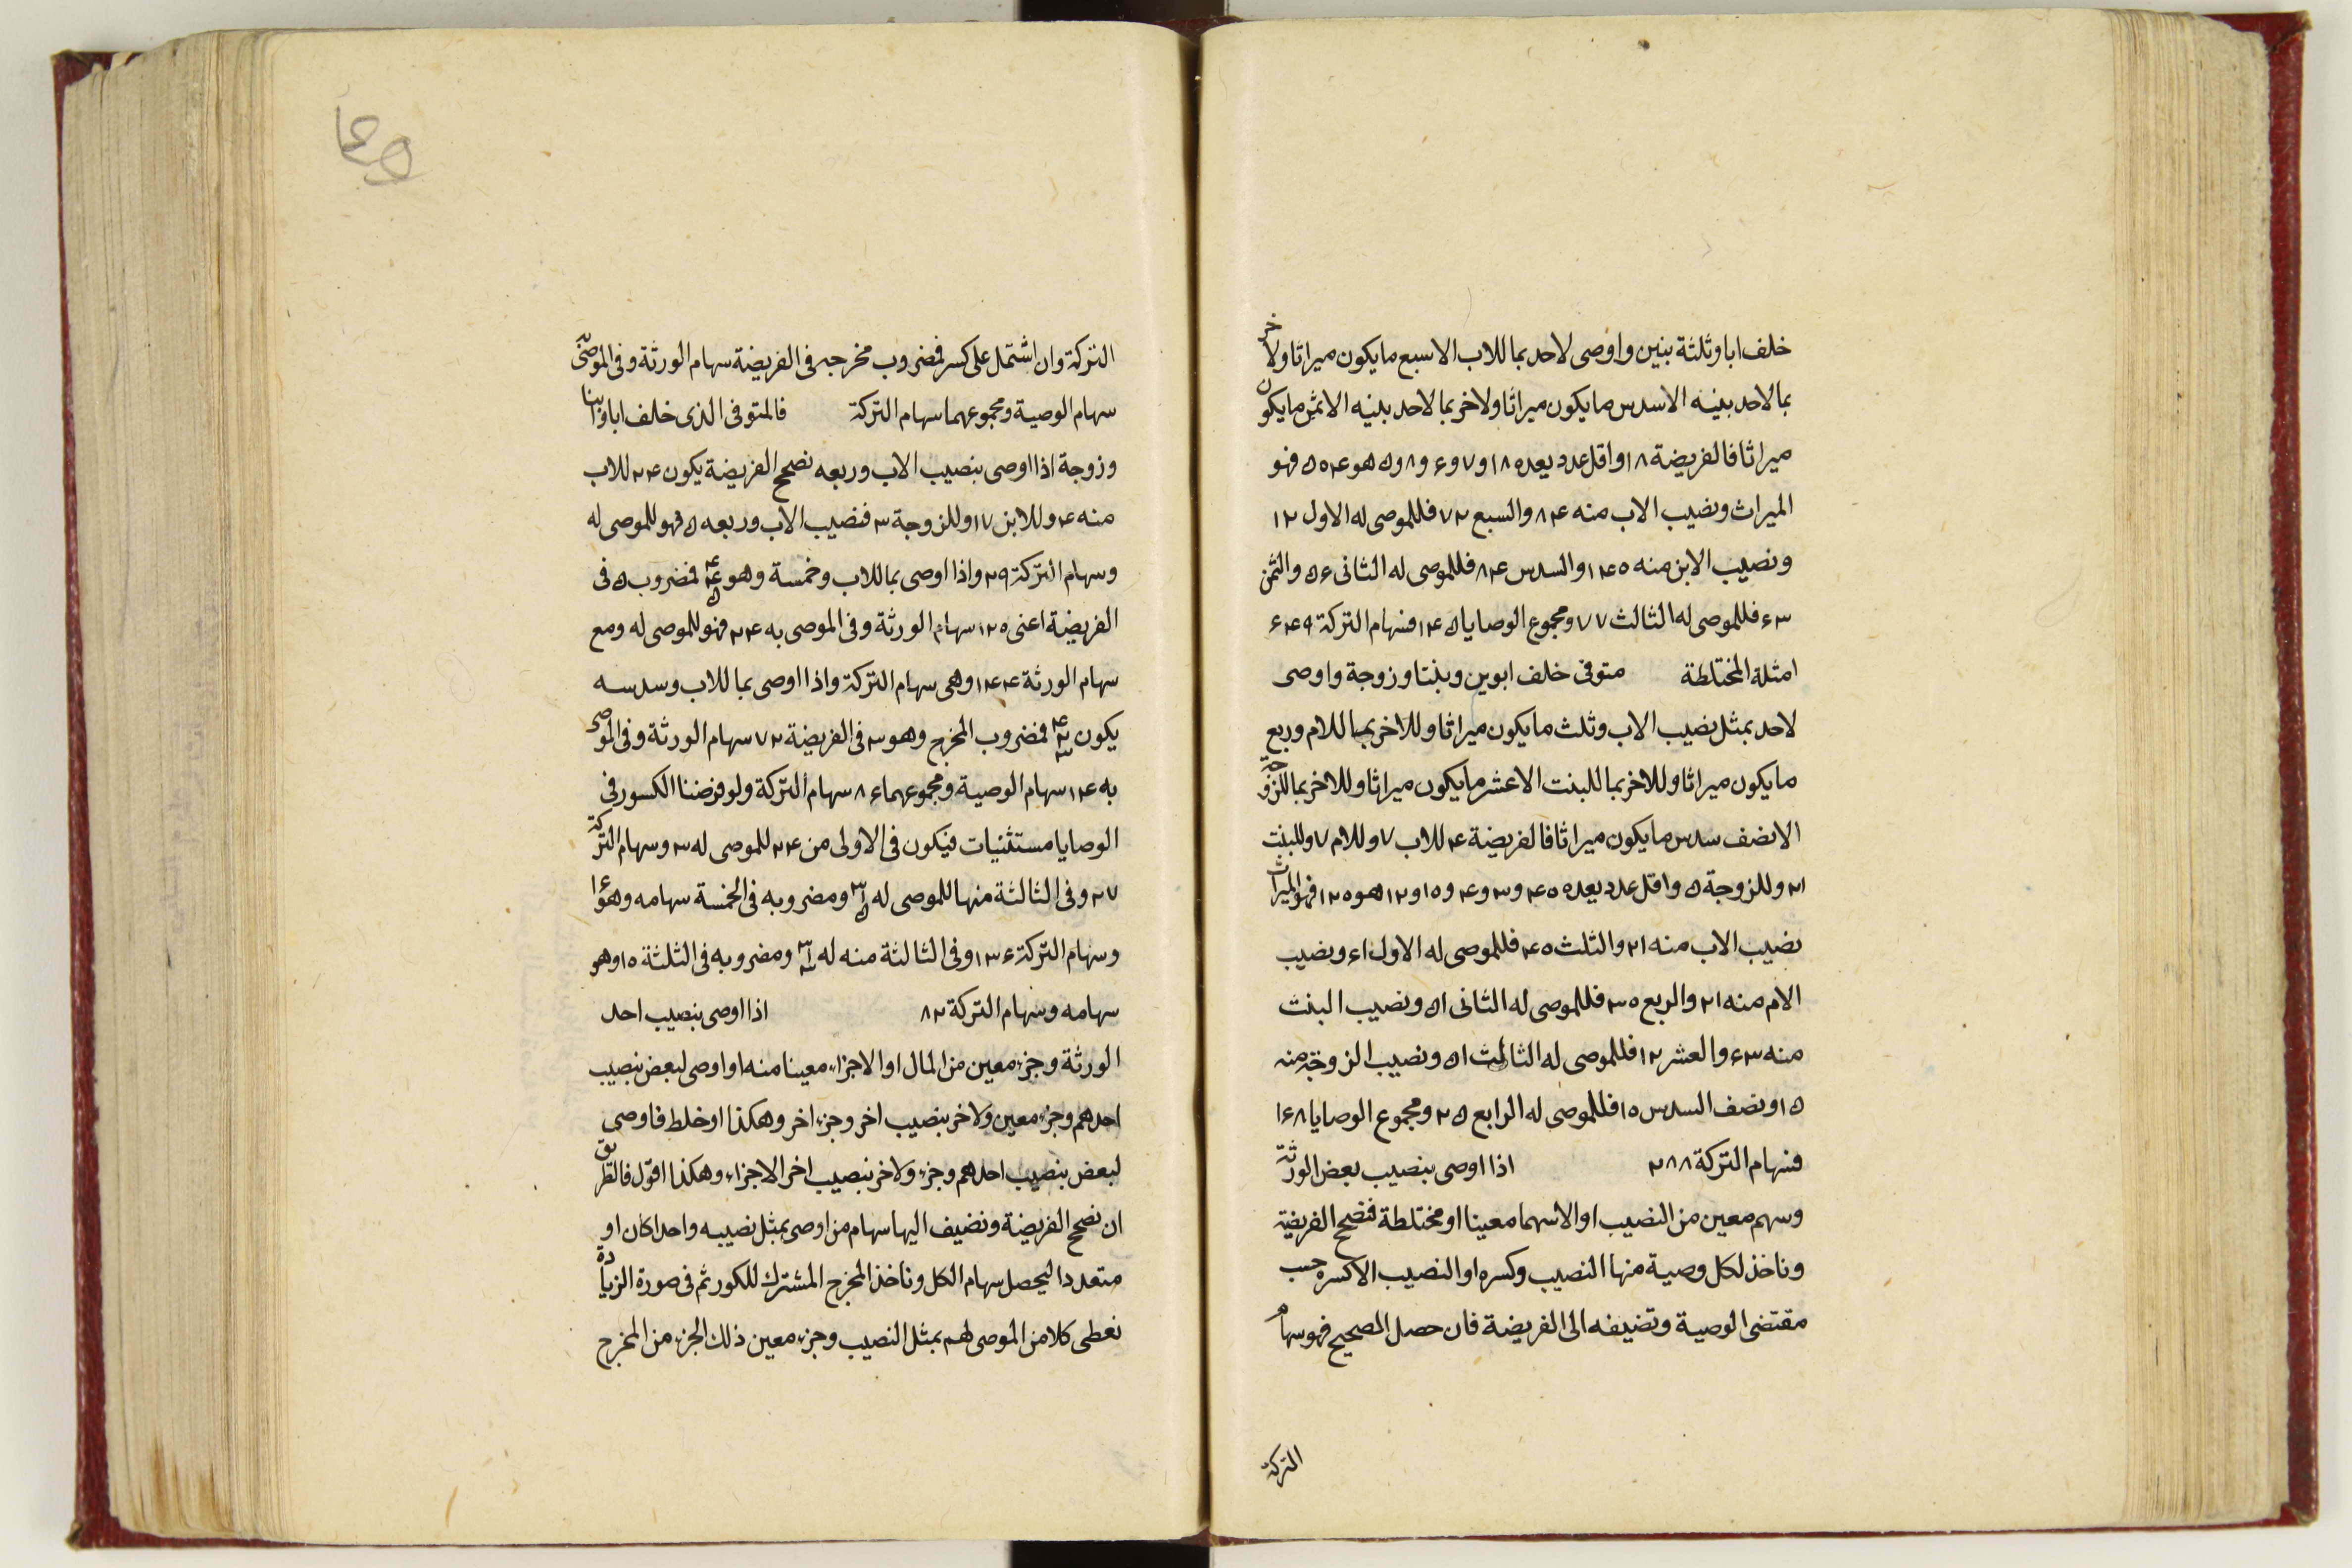 خلف ابا وثلثة بنين واوصى لاحد بما للاب الا سبع ما يكون ميراثا ولاخر
بما لاحد بنيه الا سدس ما يكون ميراثا ولاخر بما لاحد بنيه الا ثمن ما يكون
ميراثا فالفريضة ١٨ واقل عدد يعده ١٨ و٧ و۶ و٨ و۵ هو ۵۰۴ فهو
الميراث ونصيب الاب منه ٨۴ والسبع ٧٢ فللموصى له الاول ١٢
ونصيب الابن منه ١۴٠ والسدس ٨۴ فللموصى له الثانى ۵۶ والثمن
۶٣ فللموصى له الثالث ٧٧ ومجموع الوصايا ١۴۵ فسهام التركة ۶۴۹
امثلة المختلطة متوفى خلف ابوين وبنتا وزوجة واوصى
لاحد بمثل نصيب الاب وثلث ما يكون ميراثا وللاخر بما للام وربع
ما يكون ميراثا وللاخر بما للبنت الا عشر ما يكون ميراثا وللاخر بما للزوجة
الا نصف سدس ما يكون ميراثا فالفريضة ۴٠ للاب ٧ وللام ٧ وللبنت
٢١ وللزوجة ۵ واقل عدد يعده ۴٠ و٣ و۴ و١٠ و١٢ هو ١٢٠ فهو الميراث
نصيب الاب منه ٢١ والثلث ۴٠ فللموصى له الاول ۶١ ونصيب
الام منه ٢١ والربع ٣٠ فللموصى له الثانى ۵١ ونصيب البنت
منه ۶٣ والعشر ١٢ فللموصى له الثالث ۵١ ونصيب الزوجة منه
١۵ ونصف السدس ١٠ فللموصى له الرابع ۵ ومجموع الوصايا ١۶٨
فسهام التركة ٢٨٨ اذا اوصى بنصيب بعض الورثة
وسهم معين من النصيب او الا سهما معينا او مختلطة فنصحح الفريضة
وناخذ لكل وصية منها النصيب وكسره او النصيب الا كسره حسب
مقتضى الوصية وتضيفه الى الفريضة فان حصل الصحيح فهو سهام
التركة
التركة وان اشتمل على كسر فمضروب مخرجه فى الفريضة سهام الورثة وفى الموصى به
سهام الوصية ومجموعهما سهام التركة فالمتوفى الذى خلف ابا وابنا
وزوجة اذا اوصى بنصيب الاب وربعه نصحح الفريضة يكون ٢۴ للاب
منه ۴ وللابن ١٧ وللزوجة ٣ فنصيب الاب وربعه ۵ فهو للموصى له
وسهام التركة ٢۹ واذا اوصى بما للاب وخمسة وهو ۴ ۴ ۵ فمضروب ۵ فى
الفريضة اعنى ١٢٠ سهام الورثة وفى الموصى به ٢۴ فهو للموصى له ومع
سهام الورثة ١۴۴ وهى سهام التركة واذا اوصى بما للاب وسدسه
يكون ۴ ٢ ٣ فمضروب المخرج وهو ٣ فى الفريضة ٧٢ سهام الورثة وفى الموصى
به ١۴ سهام الوصية ومجموعهما ٨۶ سهام التركة ولو فرضنا الكسور فى
الوصايا مستثنيات فيكون فى الاولى من ٢۴ للموصى له ٣ وسهام التركة
٢٧ وفى الثالثة منها للموصى له ٣ ١ ۵ ومضروبه فى الخمسة سهامه وهو ١۶
وسهام التركة ١٣۶ وفى الثالثة منه له ٣ ١ ٣ ومضروبه فى الثلثة ١٠ وهو
سهامه وسهام التركة ٨٢ اذا اوصى بنصيب احد
الورثة وجزء معين من المال او الا جزاء معينا منه او اوصى لبعض بنصيب
احدهم وجزء معين ولاخر بنصيب اخر وجزء اخر وهكذا او خلط فاوصى
لبعض بنصيب احدهم وجزء ولاخر بنصيب اخر الا جزاء وهكذا اقول فالطريق
ان نصحح الفريضة ونضيف اليها سهام من اوصى بمثل نصيبه واحدا كان او
متعددا ليحصل سهام الكل وناخذ المخرج المشترك للكسور ثم فى صورة الزيادة
نعطى كلا من الموصى لهم بمثل النصيب وجزء معين ذلك الجزء من المخرج